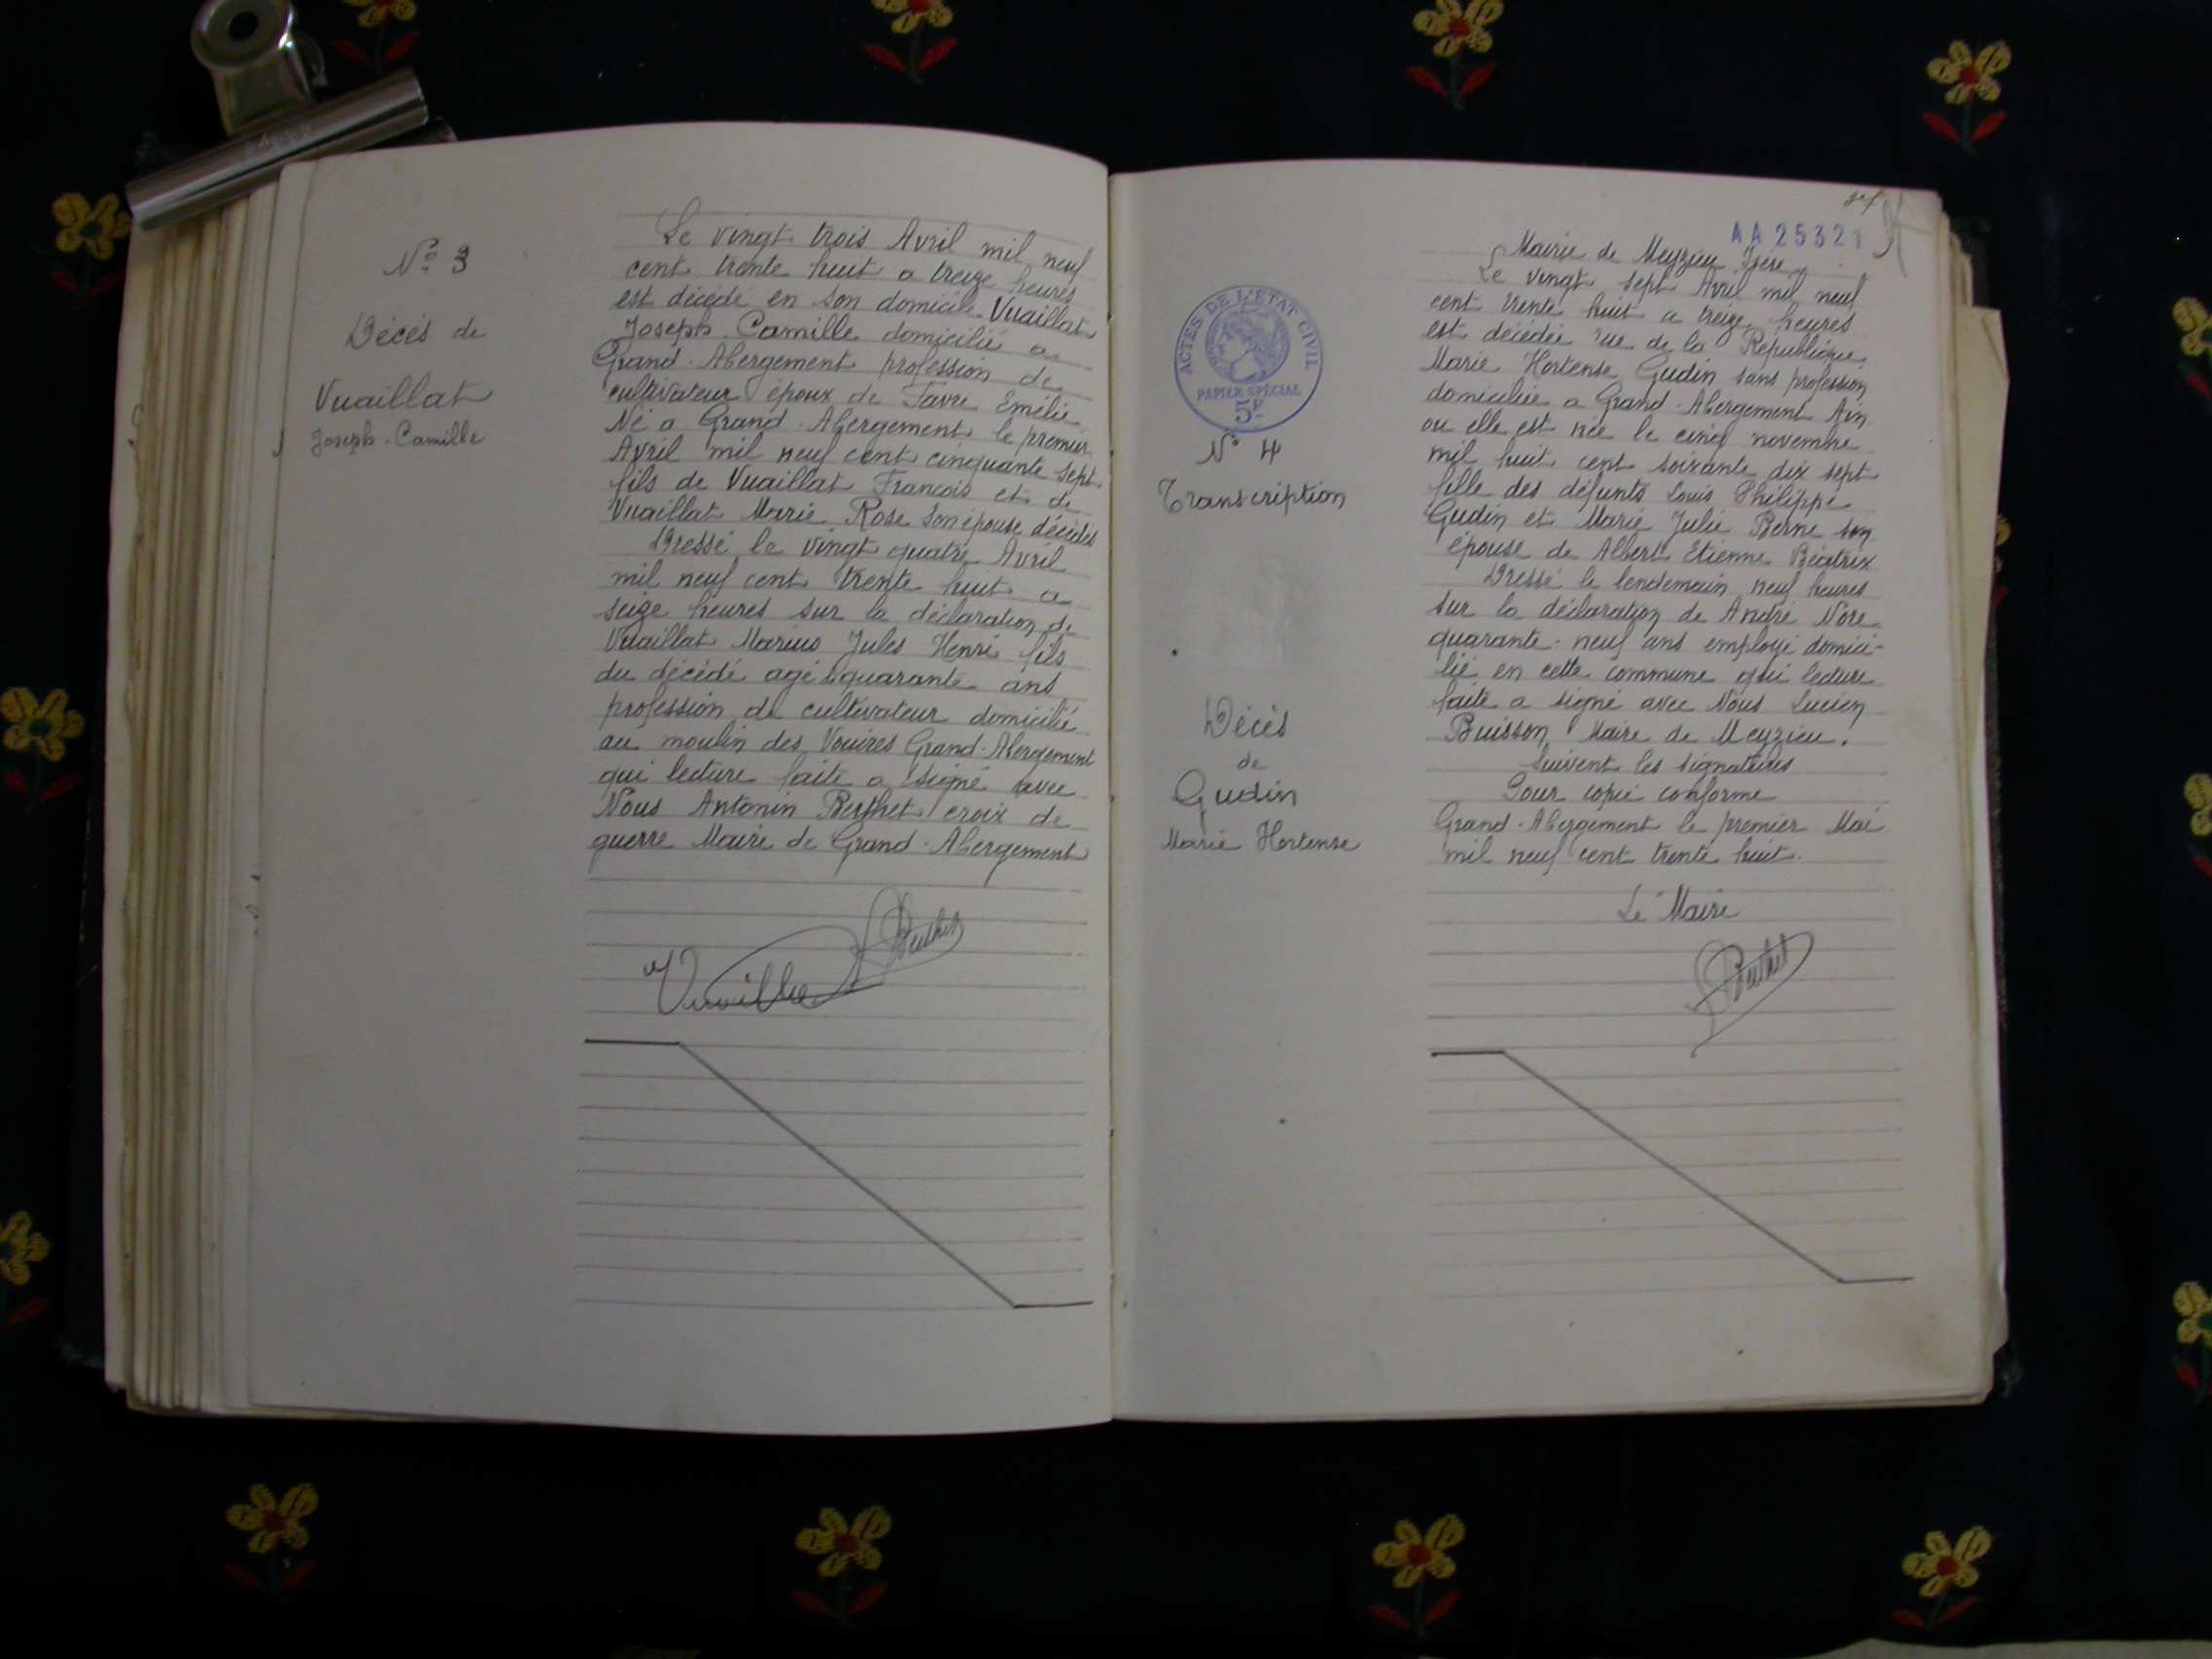 N° 3
Décés de
Vuaillat
Joseph-Camille
Le vingt trois Avril mil neuf
cent trente huit a treize heures
est décédé en son domicile Vuaillat
Joseph Camille domicilié a
Grand-Abergement profession de
cultivateur époux de Favre Emélie
Né a Grand-Abergement le premier
Avril mil neuf cent cinquante sept
fils de Vuaillat François et de
Vuaillat Marie Rose son épouse décédés
Dressé le vingt quatre Avril
mil neuf cent trente huit a
seize heures sur la déclaration de
Vuaillat Marius Jules Henri fils
du décédé agé quarante ans
profession de cultivateur domicilié
au moulin des Vouires Grand-Abergement
qui lecture faite a signé avec
Nous Antonin Berthet croix de
guerre Maire de Grand-Abergement
AA 25321
ACTES DE L'ÉTAT CIVIL
PAPIER SPÉCIAL
5F
N° 4
Transcription
Décés
de
Gudin
Marie Hortense
Mairie de Meyzieu Isère
Le vingt sept Avril mil neuf
cent trente huit a treize heures
est décédée rue de la République
Marie Hortense Gudin sans profession
domiciliée a Grand-Abergement Ain
ou elle est née le cinq novembre
mil huit cent soixante dix sept
fille des défunts Louis Philippe
Gudin et Marie Julie Berne son
épouse de Albert Etienne Béatrix
Dressé le lendemain neuf heures
sur la déclaration de André Nore
quarante-neuf ans employé domici-
lié en cette commune qui lecture
faite a signé avec Nous Lucien
Buisson Maire de Meyzieu.
Suivent les signatures
Pour copie conforme
Grand-Abergement le premier Mai
mil neuf cent trente huit.
Le Maire
Berthet